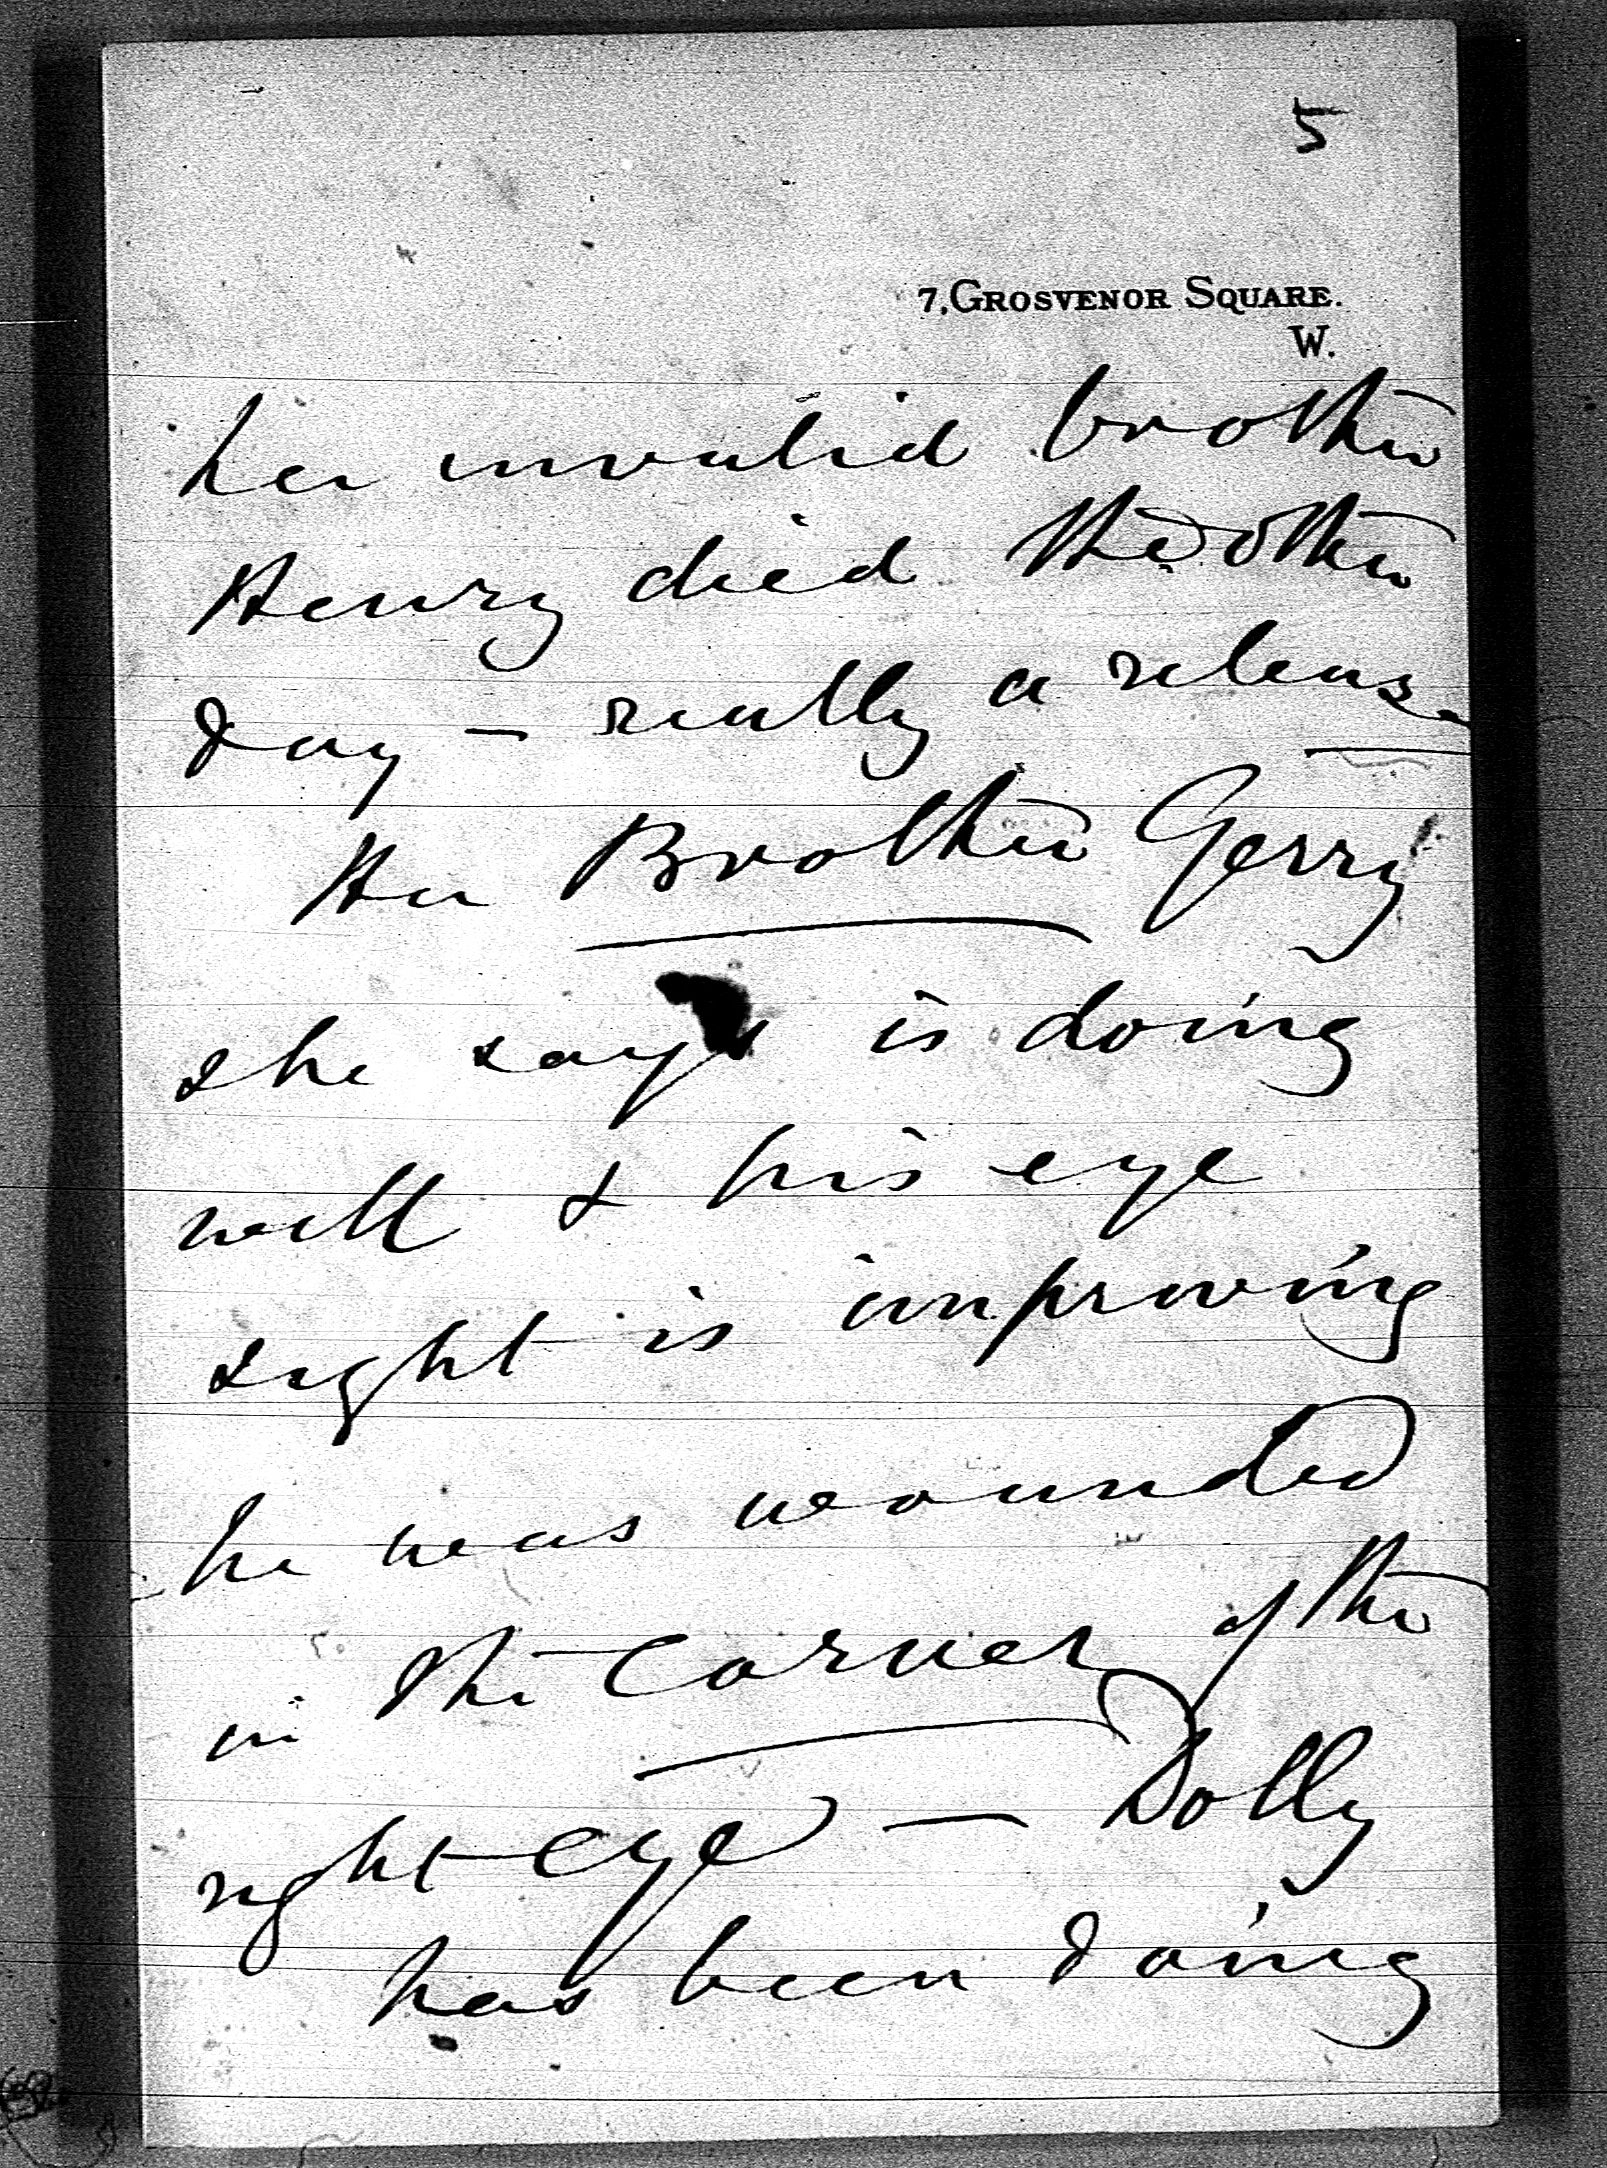 5
7, GROSVENOR SQUARE.
W.
her invalid brother
Henry died the other
day – really a release
Her Brother Gerry
she says is doing
well & his eye
sight is improving
he was wounded
in the corner of the
right eye – Dolly
has been doing